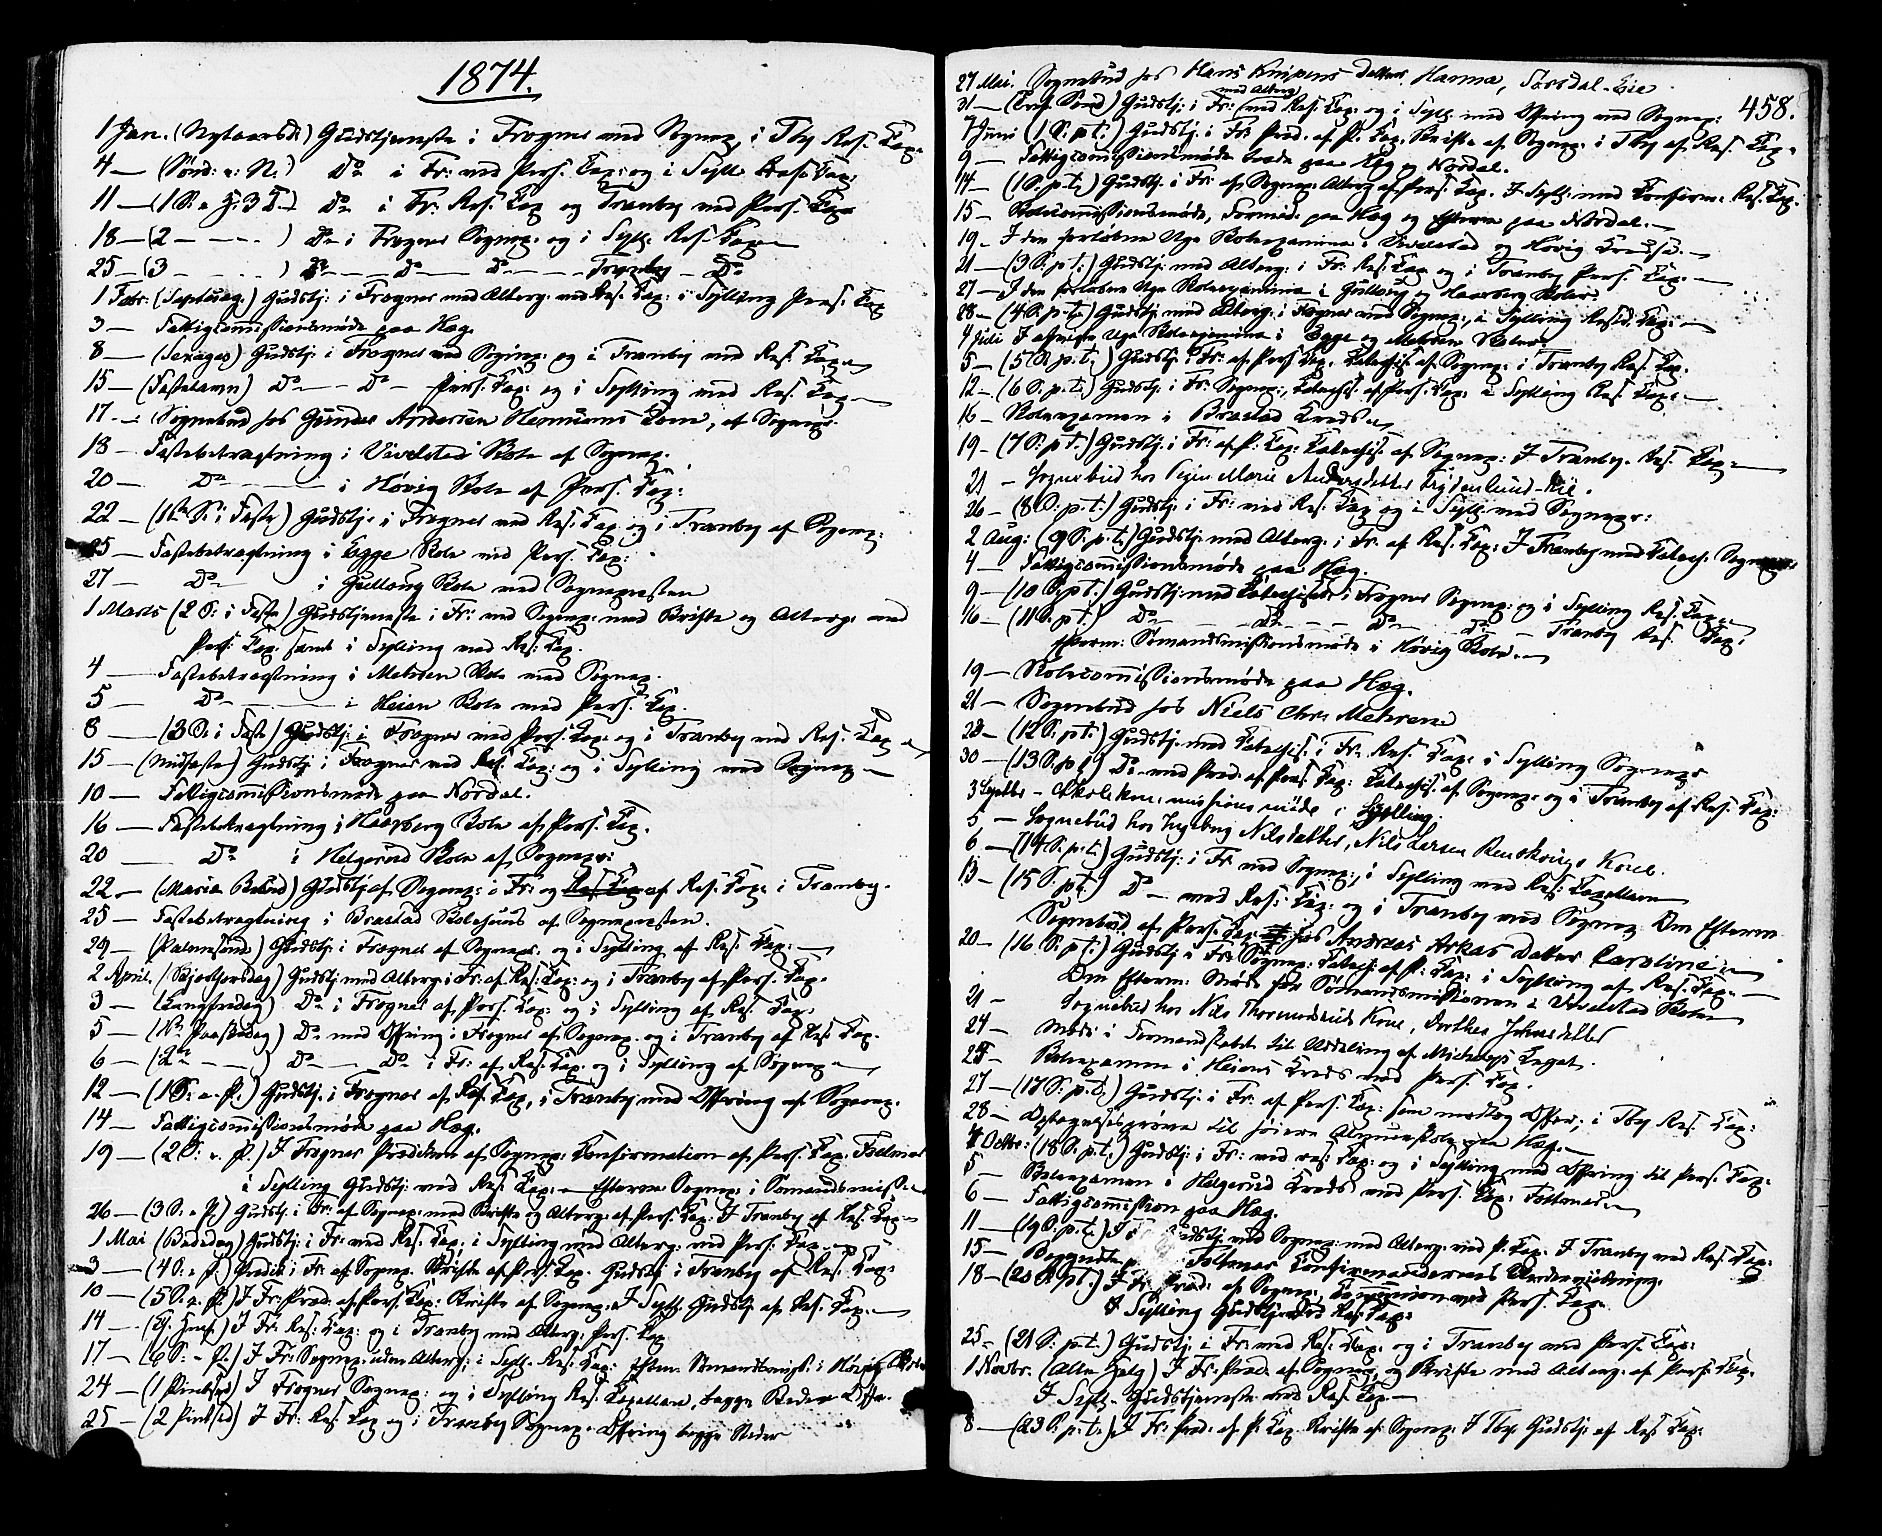 1874.
1 Jan. (Nytaarsd:) Gudstjeneste i Frogner med Sognep, i Tby Res. Cap.
4 — (Sønd: e: N:) Do i Fr: med Pers. Cap: og i Syll. Res. Cap:
11 — (1 S: e. H. 3 K.) Do i Fr: Res. Cap og Tranby med Pers. Cap
18 — (2 — - - - ) Do i Frogner Sognep: og i Syll. Res. Cap
25 — (3 - - - - ) Do — Do — Do — Tranby — Do
1 Febr: (Septuag.) Gudstj: i Frogner med Alterg: ved Res. Cap: i Sylling Pers. Cap
3 — Fattigcommissionsmøde paa Hæg.
8 — (Sexages) Gudstj: i Frogner ved Sognep: og i Tranby ved Res. Cap
15 — (Fastelavn) Do — Do — Pers. Cap: og i Sylling ved Res. Cap
17 — Sognebud hos Gunder Andersen Kone, af Sognepr.
18 — Fastebetragtning i Vivelstad Skole af Sognep.
20 — Do — i Høvig Skole af Pers. Cap:
22 — (1ste S: i Faste) Gudstj: i Frogner ved Res. Cap og i Tranby af Sognep:
25 — Fastebetragtning i Egge Skole ved Pers. Cap:
27 — Do — i Gullaug Skole ved Sognepresten
1 Marts (2 S: i Faste) Gudstjeneste i Fr: ved Sognep: med Skrifte og Alterg: ved
Pers. Cap: samt i Sylling ved Res. Cap.
4 — Fastebetragtning i Mehren Skole ved Sognep.
5 — Do — i Heien Skole ved Pers. Cap.
8 — (3 S: i Faste) Gudstj: i Frogner ved Pers. Cap: og i Tranby ved Res. Cap
15 — (Midfaste) Gudstj: i Frogner ved Res. Cap: og i Sylling ved Sognep
10 — Fattigcommissionsmøde paa Nordal.
16 — Fastebetragtning i Haarberg Skole af Pers. Cap.
20 — Do i Helgerud Skole af Sognepr:
22 — (Maria Bebud) Gudstj af Sognep: i Fr: og Res. Cap af Res. Cap. i Tranby.
25 — Fastebetragtning i Brastad Skolehuus af Sognepresten.
29 — (Palmesønd) Gudstj: i Frogner af Sognepr. og i Sylling af Res. Cap.
2 April. (Skjærthorsdag) Gudstj med Alterg: i Fr: af Res. Cap: og i Tranby af Pers. Cap.
3 — (Langfredag) Do i Frogner af Pers. Cap: og i Sylling af Res. Cap.
5 — (1ste Paaskedag) Do med Offring i Frogner af Sognep. og i Tranby af Res. Cap.
6 — (2den — ) Do — Do i Fr: af Res. Cap: og i Sylling af Sognep
12 — (1 S: e. P.) Gudstj: i Frogner af Res. Cap, i Tranby med Offring af Sognep.
14 — Fattigcommissionsmøde paa Hæg.
19 — (2 S: e. P.) I Frogner Prædiken af Sognep: Confirmation af Pers. Cap: Follmar
i Sylling Gudstj: ved Res. Cap: — Efterm Sognep: i Sømandsmiss.
26 — (3 S: e P.) Gudstj: i Fr: af Sognep: med Skrifte og Alterg: af Pers. Cap: I Tranby af Res. Cap
1 Mai (Bededag) Gudstj: i Fr: ved Res. Cap, i Sylling med Alterg: ved Pers. Cap
3 — (4 S: e P.) Prædik i Fr: af Sognep. Skrifte af Pers. Cap. Gudstj: i Tranby af Res. Cap
10 — (5 S: e. P.) I Fr: Præd. af Pers. Cap: Skrifte af Sognep: I Syll. Gudstj: af Res. Cap.
14 — I Fr: Res. Cap: og i Tranby med Alterg: Pers. Cap
17 — (6 S: e. P.) I Fr: Sognep: uden Alterg: i Syll. Res. Cap: Eftm. Sømandsmiss: i Høvig Skole
24 — (1 Pintsed) I Frogner Sognep: og i Sylling Res. Capellan, begge Steder Offr.
25 — (2 Pintsed) I Fr: Res. Cap og i Tranby Sognep: Offring begge Steder
458.
27 Mai. Sognebud hos Hans Knipens Datter Hanna, Sørsdal-Eie.
med Alterg
31 — (Tref. Sønd) Gudstj: i Fr: ved Res. Cap: og i Syll: med Offring ved Sognep:
7 Juni (1 S: p t.) Gudstj: i Fr: Præd. af P. Cap. Skrifte af Sognep: i Tby af Res. Cap.
9 — Fattigcommissionsmøde baade paa Hæg og Nordal.
14 — (1 S. p. t.) Gudstj: i Fr: af Sognep: Alterg af Pers. Cap. I Syll: med Confirm: Res. Cap.
15 — Skolecommissionsmøde, Formid: paa Hæg og Efterm paa Nordal.
19 — I den forløbne Uge Skoleexamina i Vivelstad og Høvig Kredse.
21 — (3 S: p t.) Gudstj: med Alterg: i Fr: Res. Cap og i Tranby Pers. Cap:
27 — I den forløbne Uge Skoleexamina i Gullaug og Haarberg Skoler.
28 — (4 S: p. t.) Gudstj: med Alterg: i Frogner ved Sognep:, i Sylling Resid. Cap:
4 Juli I afvigte Uge Skoleexamina i Egge og Mehren Skoler
5 — (5 S. p. t.) Gudstj: i Fr: af Pers Cap, Catechis. af Sognep: i Tranby Res. Cap.
12 — (6 S. p. t.) Gudstj: i Fr: Sognep:, Catechis. af Pers. Cap: i Sylling Res. Cap:
16 — Skoleexamen i Brastad Kreds
19 — (7 S: p t.) Gudstj: i Fr: af P. Cap: Catechis. af Sognep: I Tranby. Res. Cap:
21 — Sognebud hos Marie Andersdatter -Eie.
26 — (8 S: p. t.) Gudstj: i Fr: ved Res. Cap og i Syll: ved Sognepr:
2 Aug: (9 S: p. t.) Gudstj: med Alterg: i Fr. af Res. Cap: I Tranby med Catech. Sognepr:
4 — Fattigcommissionsmøde paa Hæg.
9 — (10 S: p. t.) Gudstj: med Catechis. i Frogner Sognep: og i Sylling Res. Cap.
16 — (11 S. p t.) Do — Do — Do — Do — Tranby Res. Cap:
Efterm: Sømandsmissionsmøde i Høvig Skole.
19 — Skolecommissionsmøde paa Hæg.
21 — Sognebud hos Niels Chr. Mehren
23 — (12 S: p t.) Gudstj: med Catechis: i Fr: Res. Cap: i Sylling Sognepr
30 — (13 S. p t) Do med Præd. af Pers. Cap: Catechis. af Sognep: og i Tranby af Res. Cap:
3 Septbr — Skolekommissionsmøde i Sylling
5 — Sognebud hos Ingeborg Nilsdatter, Nils Larsen Kone.
6 — (14 S: p. t.) Gudstj: i Fr ved Sognep:, i Sylling ved Res. Capellan
13 — (15 S. p. t.) Do — ved Res. Cap: og i Tranby ved Sognep Den Efterm
Sognebud af Pers. Cap. hos Andreas Askas Datter Caroline
20 — (16 S. p. t.) Gudstj: i Fr: Sognep: Catech: af P. Cap: i Sylling af Res. Cap.
Den Efterm: Møde for Sømandsmissionen i Vivelstad Skole
21 — Sognebud hos Nils Thormodsruds Kone, Dorthea Johnsdatter
24 — Møde i Formandskabet til Uddeling af Michelsens Legat.
25 — Skoleexamen i Heiens Kreds ved Pers. Cap.
27 — (17 S: p. t.) Gudstj: i Fr: af Pers. Cap: som modtog Offer; i Tby Res. Cap:
28 — Optagelsesprøve til høiere Almueskole paa Hæg.
4 Octbr: (18 S. p. t.) Gudstj: i Fr: ved res. Cap: og i Sylling med Offring til Pers. Cap:
5 — Skoleexamen i Helgerud Kreds ved Pers. Cap: Follmar
6 — Fattigcommission paa Hæg.
11 — (19 S: p. t.) I Gudstj: ved Sognep: med Alterg: ved P. Cap. I Tranby ved Res. Cap:
15 — Begyndte Follmar Confirmandernes Underviisning.
18 — (20 S. p t.) I Fr. Præd. af Sognep, Communion ved Pers. Cap.
I Sylling Gudstj ved Res. Cap:
25 — (21 S: p. t.) Gudstj: i Fr ved Res. Cap: og i Tranby ved Pers. Cap:
1 Novbr. (Alle Helg) I Fr: Præd. af Sognep, og Skrifte med Alterg: af Pers. Cap.
I Syll. Gudstjeneste ved Res. Cap —
8 — (23 S. p. t.) I Fr: Præd. af P. Cap. Skrifte af Sognep: I Tby Gudstj: af Res. Cap: